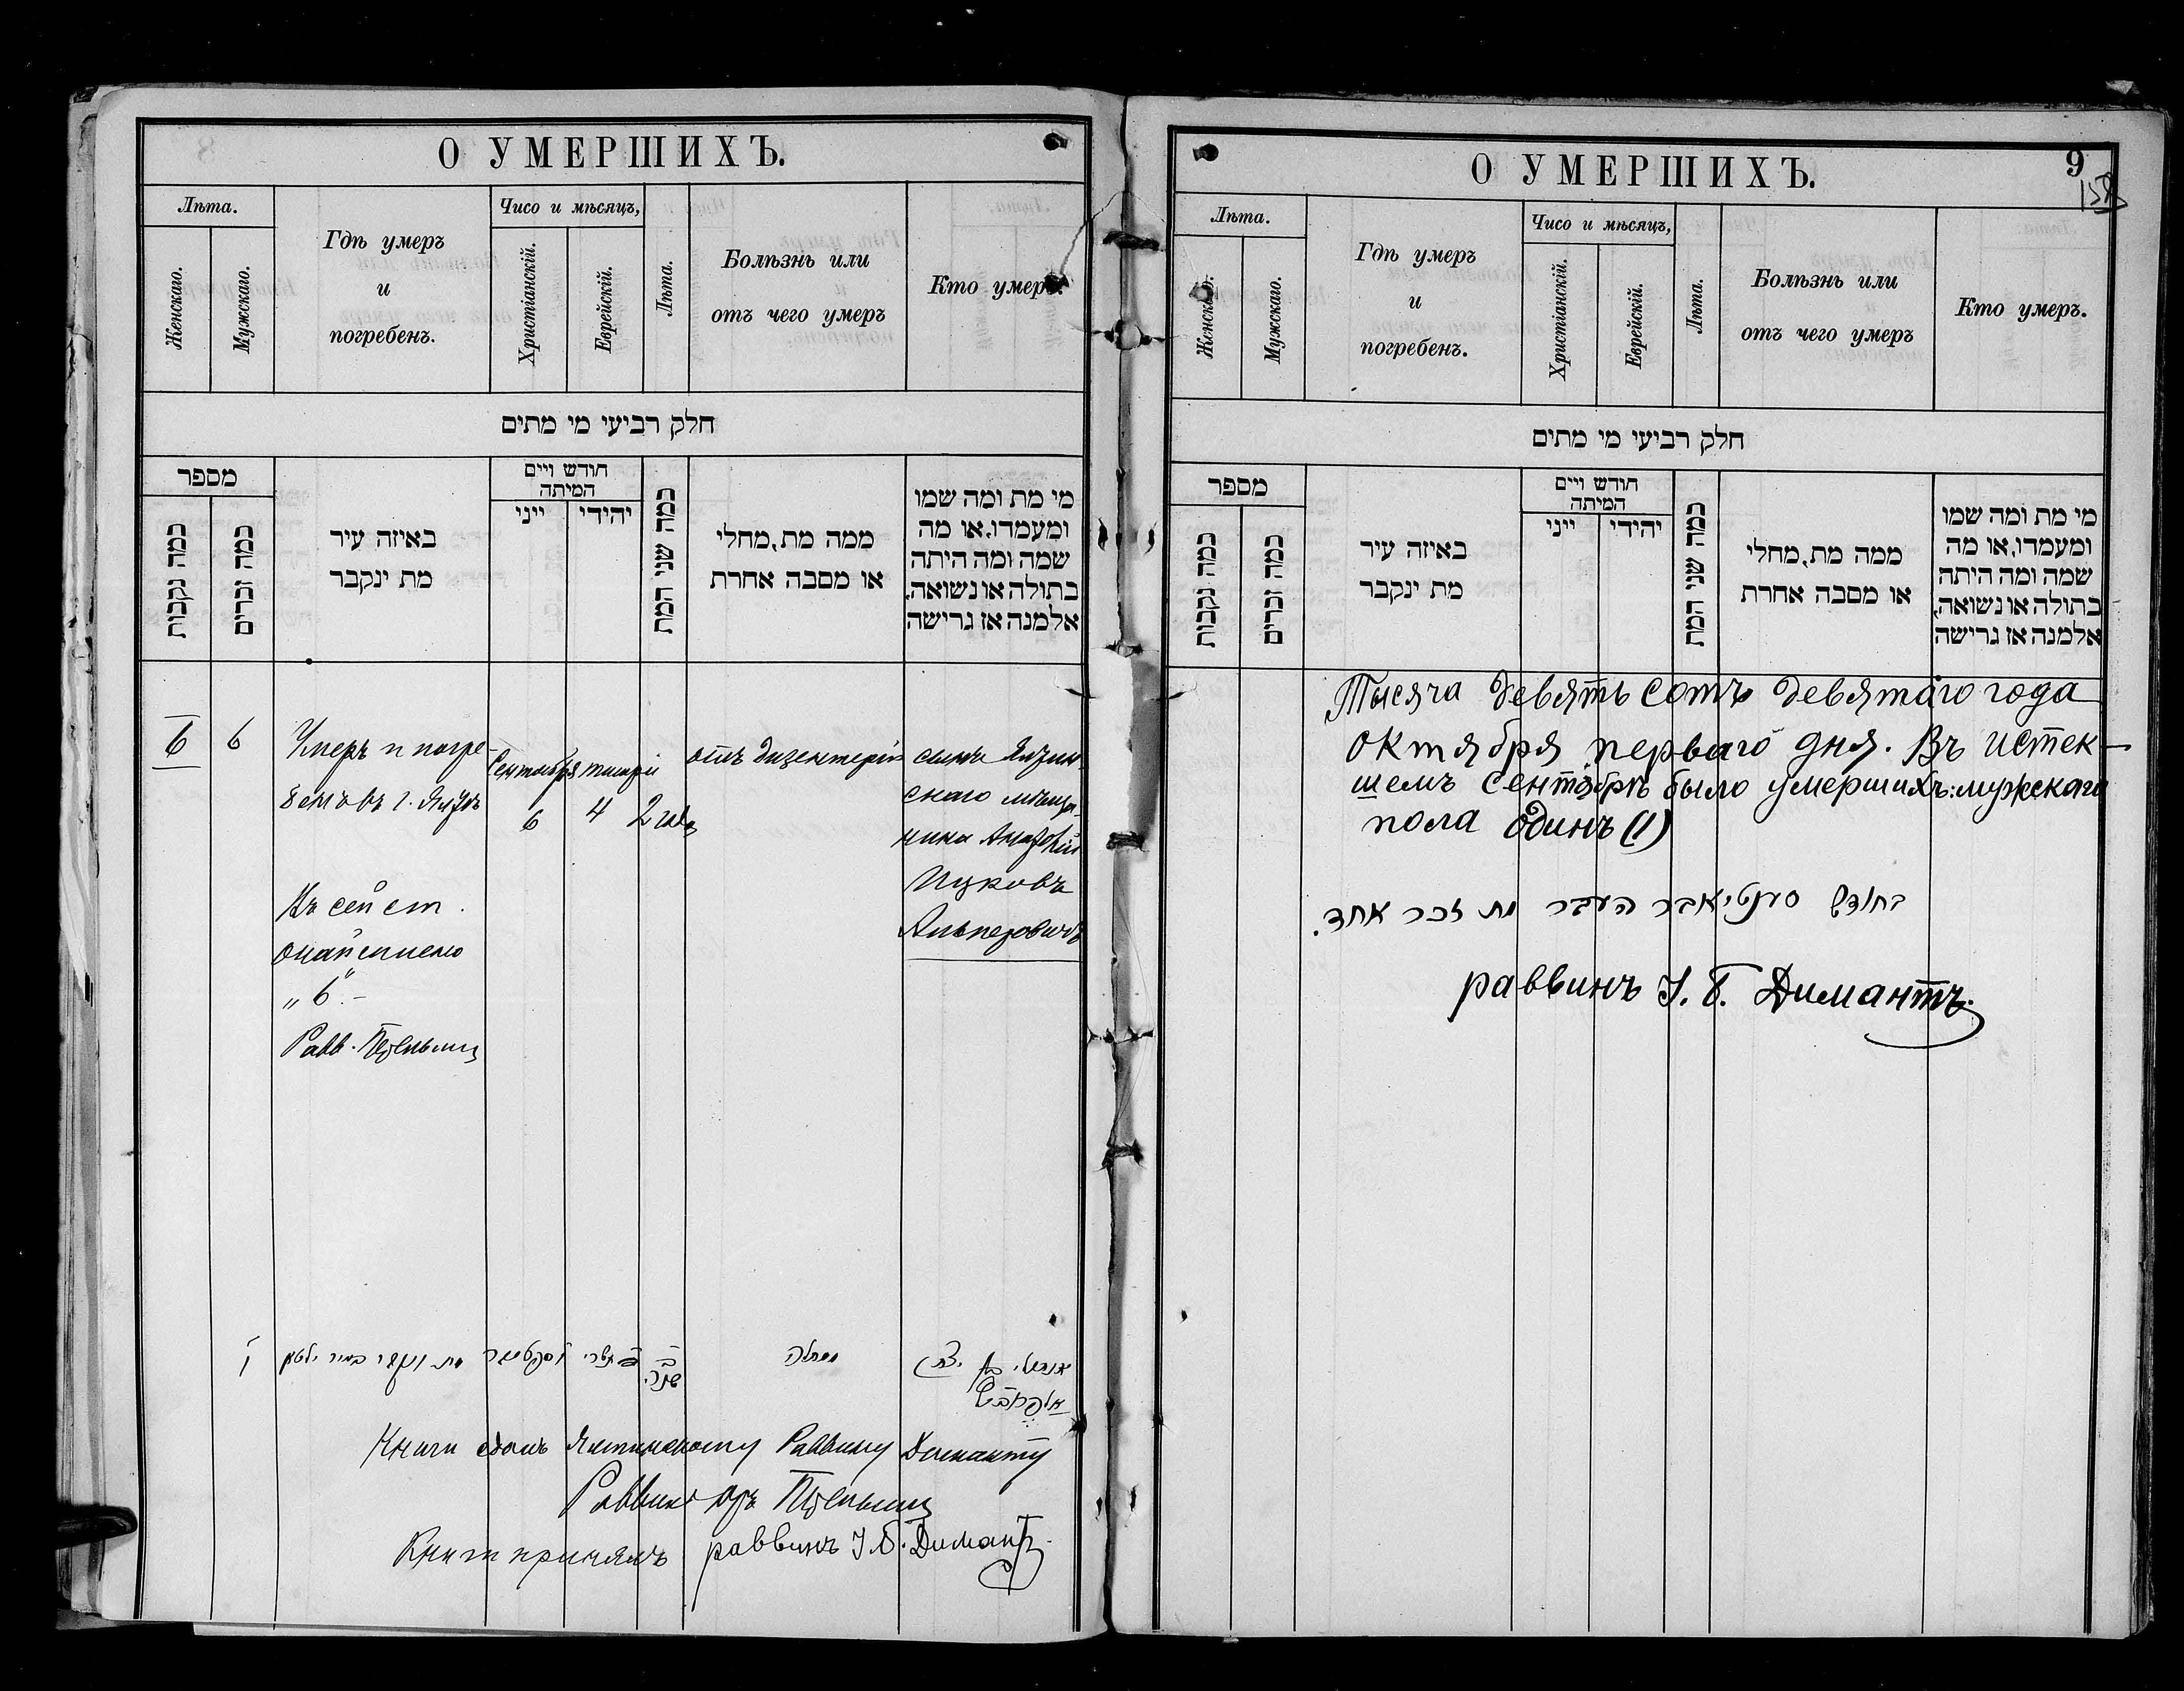 О УМЕРШИХЪ.
Лѣта.
Женскаго.
Мужскаго.
Гдѣ умеръ
и
погребенъ.
Чисо и мѣсяцъ,
Христіанскій.
Еврейскій.
Лѣта.
Болѣзнь или
отъ чего умеръ
Кто умеръ.
חלק רביעי מי מתים
מספר
כמה נקבות
כמה זכרים
באיזה עיר
מת ינקבר
חודש ויים
המיתה
ייני
יהידי
כמה שני המת
ממה מת, מחלי
או מסבה אחרת
מי מת ומה שמו
ומעמדו, או מה
שמה ומה היתה
בתולה או נשואה,
אלמנה אז גרישה
6
6
Умеръ и погре-
бенъ въ г.
Сентября
6
4
2 года
отъ дизентеріи
сынъ
скаго мѣща-
нина
Ицковъ
Альперовичъ
"6".-
Равв.
מחלה
Книги сдалъ Раввину Диманту
Раввинъ
Книги принялъ раввинъ І. Б. Димантъ.
О УМЕРШИХЪ.
9
Лѣта.
Женскаго.
Мужскаго.
Гдѣ умеръ
и
погребенъ.
Чисо и мѣсяцъ,
Христіанскій.
Еврейскій.
Лѣта.
Болѣзнь или
отъ чего умеръ
Кто умеръ.
חלק רביעי מי מתים
מספר
כמה נקבות
כמה זכרים
באיזה עיר
מת ינקבר
חודש ויים
המיתה
ייני
יהידי
כמה שני המת
ממה מת, מחלי
או מסבה אחרת
מי מת ומה שמו
ומעמדו, או מה
שמה ומה היתה
בתולה או נשואה,
אלמנה אז גרישה
Тысяча девять сотъ девятаго года
октября перваго дня. Въ истек-
шемъ сентябрѣ было умершихъ: мужскаго
пола одинъ (1)
בחודש סענטיאבר העבר מת זכר אחד.
раввинъ І. Б. Димантъ.